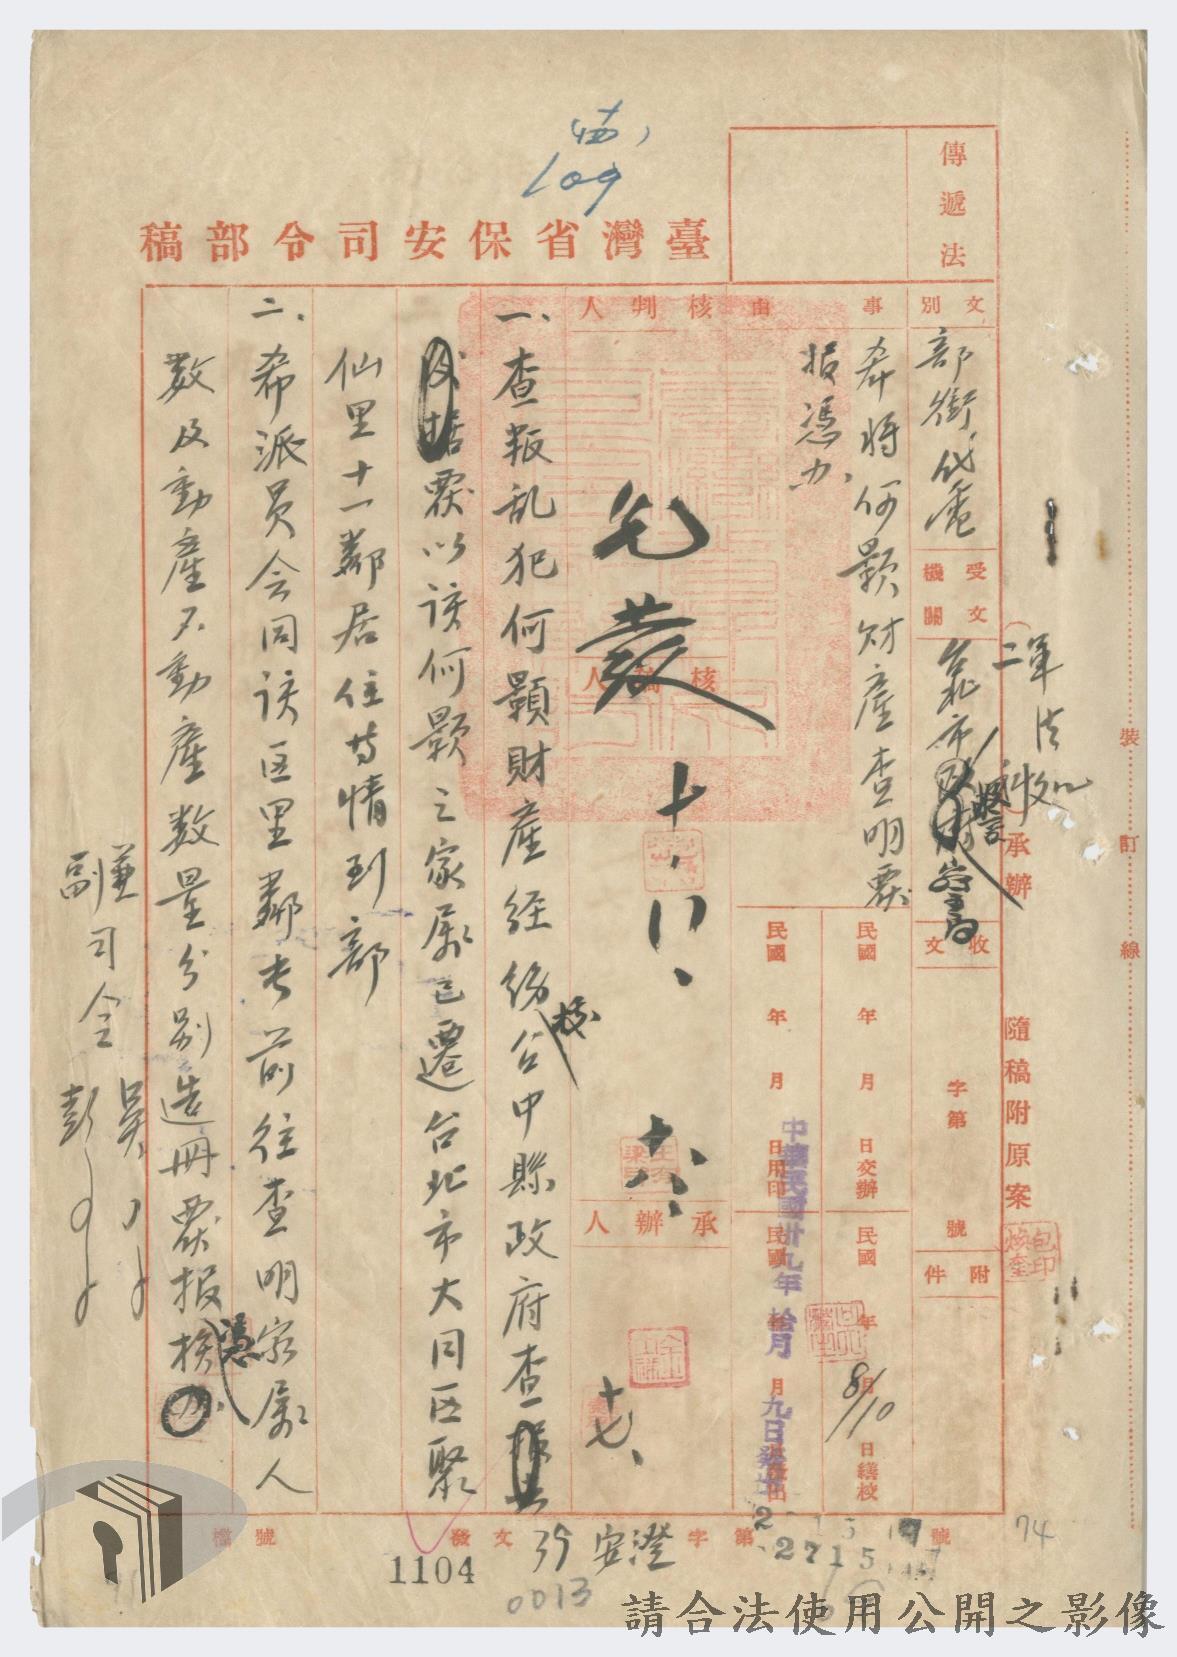 臺灣省保安司令部稿
傳遞法
文別
部銜代電
受文機關
台北市警
收文
字第
號
附件
事由
希將何顯財產查明覆
报憑办
核判人
核稿人
承辦人
民國 年 月 日交辦
民國 年 月 日繕校
8/10
民國 年 月 日用印
中華民國卅九年拾月九日
发
十、八、
六、
十七、
一、查叛乱犯何顯財產經飭台中縣政府查
校
覆以该何顯之家屬已遷台北市大同区聚
仙里十一鄰居住等情到部
二、希派員会同该区里鄰長前往查明家屬人
数及動產不動產数量分别造册覆报
憑
兼司令吳
副司令彭
軍法
承辦
隨稿附原案
包煥奎印
裝
訂
線
檔號
發文
39
安澄
字第
2715
號
1104
0013
109
74
請合法使用公開之影像